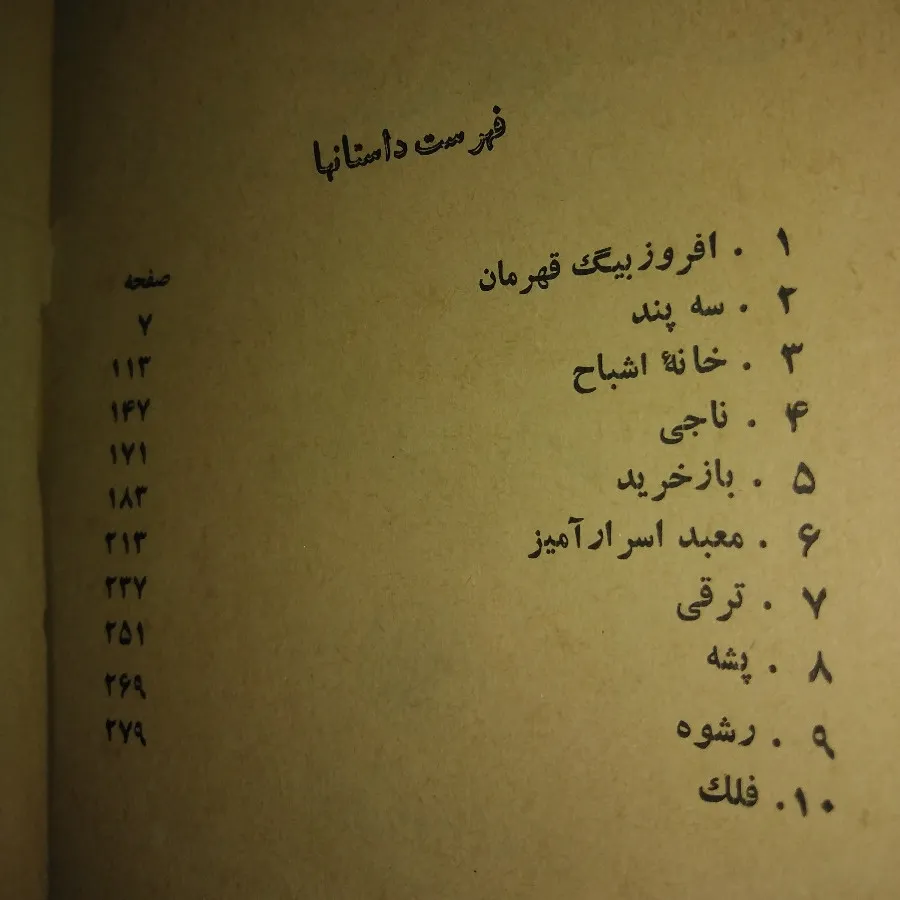 فهرست داستانها
صفحه
۱ . افروز بیگ قهرمان ۷
۲ . سه پند ۱۱۳
۳ . خانهٔ اشباح ۱۴۷
۴ . ناجی ۱۷۱
۵ . بازخرید ۱۸۳
۶ . معبد اسرارآمیز ۲۱۳
۷ . ترقی ۲۳۷
۸ . پشه ۲۵۱
۹ . رشوه ۲۶۹
۱۰ . فلك ۲۷۹